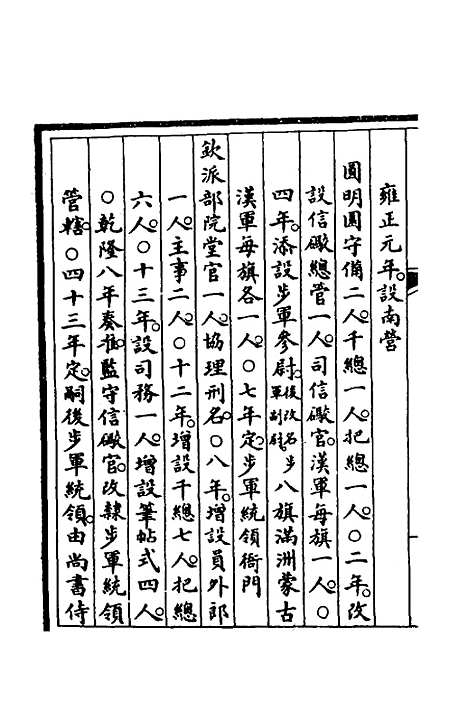 雍正元年。設南營
圓明園守備二人。千總一人。把總一人。○二年。改
設信礮總管一人。司信礮官。漢軍每旗一人。○
四年。添設步軍參尉。後改名步軍副尉。八旗滿洲蒙古
漢軍每旗各一人。○七年定。步軍統領衙門
欽派部院堂官一人。協理刑名。○八年。增設員外郎
一人。主事二人。○十二年。增設千總七人。把總
六人。○十三年。設司務一人。增設筆帖式四人。
○乾隆八年奏准。監守信礮官。改隸步軍統領
管轄。○四十三年定。嗣後步軍統領。由尚書侍